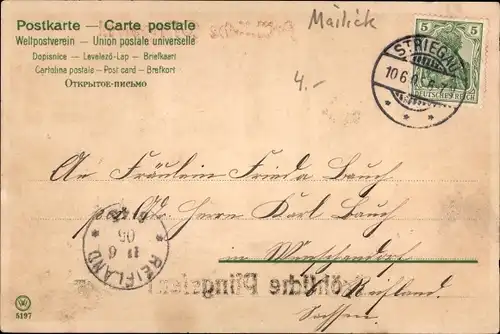 Postkarte — Carte postale
Weltpostverein – Union postale universelle
Dopisnice – Levelező-Lap – Briefkaart
Cartolina postale – Post card – Brefkort
Открытое-письмо
Mailick
4.-
5 5
DEUTSCHES REICH
STRIEGAU
10.6.05
An Fräulein Frieda Bauch
Herrn Karl Bauch
in
b/ Reifland.
Sachsen
REIFLAND
11 6
05
Fröhliche Pfingsten!
5197